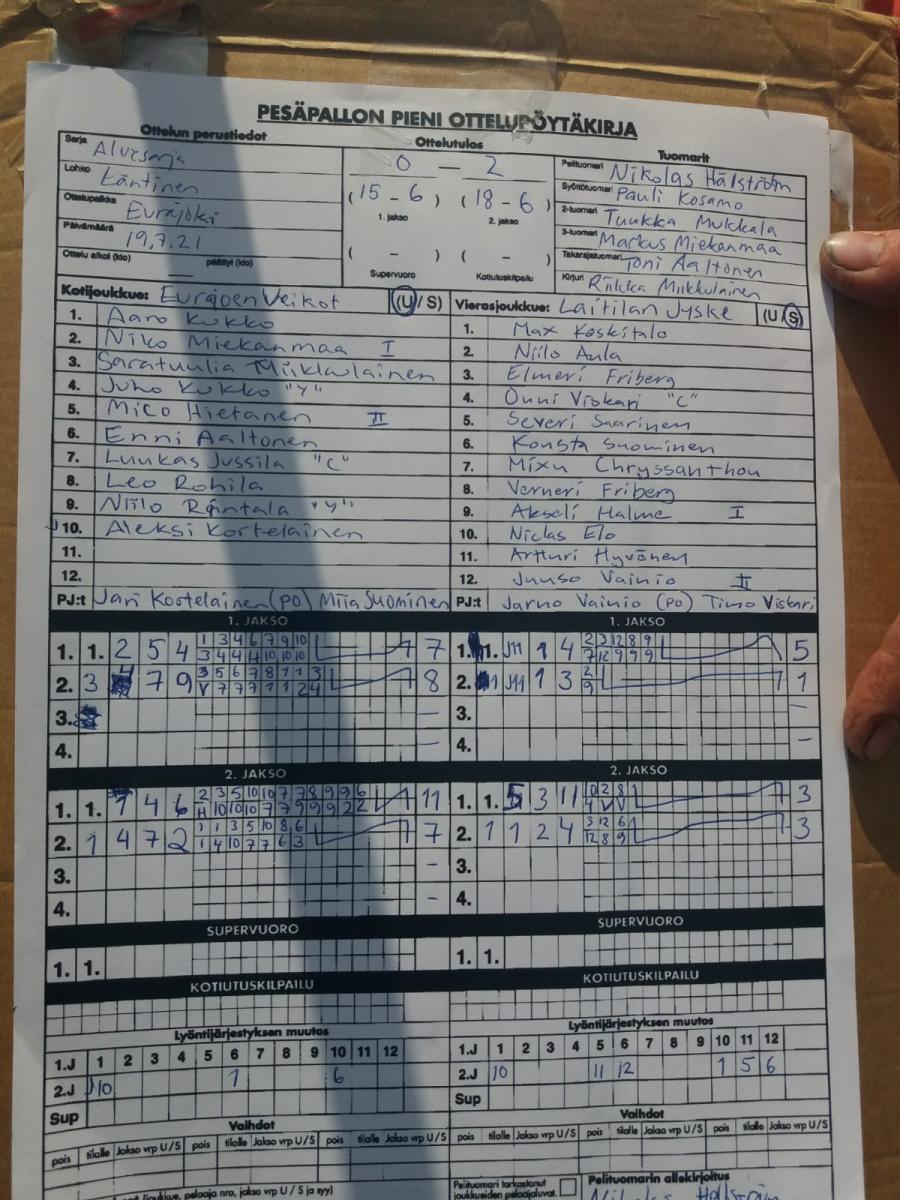 PESÄPALLON PIENI OTTELUPÖYTÄKIRJA
Ottelun perustiedot
Sarja Aluesarja
Lohko Läntinen
Ottelupaikka Eurajoki
Päivämäärä 19.7.21
Ottelu alkoi (klo) — päättyi (klo)
Ottelutulos
0 — 2
(15 - 6) (18 - 6)
1. jakso 2. jakso
( - ) ( - )
Supervuoro Kotiutuskilpailu
Tuomarit
Pelituomari Nikolas Hälström
Syöttötuomari Pauli Kosamo
2-tuomari Tuukka Mukkala
3-tuomari Markus Miekanmaa
Takarajatuomari Toni Aaltonen
Kirjuri Riikka Miikkulainen
Kotijoukkue: Eurajoen Veikot (U / S)
1. Aaro Kukko
2. Niko Miekanmaa I
3. Saratuulia Miikkulainen
4. Juho Kukko "Y"
5. Mico Hietanen II
6. Enni Aaltonen
7. Luukas Jussila "C"
8. Leo Rohila
9. Niilo Räntala "Y"
10. Aleksi Kortelainen
11.
12.
PJ:t Jari Kortelainen (PO) Miia Suominen
Vierasjoukkue: Laitilan Jyske (U / S)
1. Max Koskitalo
2. Niilo Aula
3. Elmeri Friberg
4. Onni Viskari "C"
5. Severi Saarinen
6. Konsta Suominen
7. Mixu Chryssanthou
8. Verneri Friberg
9. Akseli Halme I
10. Niclas Elo
11. Artturi Hyvönen
12. Juuso Vainio II
PJ:t Jarno Vainio (PO) Timo Viskari
1. JAKSO
1. 1. 2 5 4 1 3 4 6 7 9 10 7
3 4 4 4 10 10 10
2. 3 7 9 3 5 6 7 8 1 1 3 8
V 7 7 7 1 1 2 4
3. —
4. —
1. JAKSO
1. 1. 1 4 2 3 12 8 9 5
7 12 9 9 9
2. 1 3 2 1
9
3. —
4. —
2. JAKSO
1. 1. 4 6 2 3 5 10 10 7 7 8 9 9 6 11
10 10 10 7 7 9 9 9 2 2
2. 1 4 7 2 1 1 3 5 10 8 6 7
1 4 10 7 7 6 3
3. —
4. —
2. JAKSO
1. 1. 3 11 10 2 8 3
4 V V
2. 1 1 2 4 3 12 6 3
12 8 9
3.
4.
SUPERVUORO
1. 1.
SUPERVUORO
1. 1.
KOTIUTUSKILPAILU
KOTIUTUSKILPAILU
Lyöntijärjestyksen muutos
1.J 1 2 3 4 5 6 7 8 9 10 11 12
2.J 10 1 6
Sup
Lyöntijärjestyksen muutos
1.J 1 2 3 4 5 6 7 8 9 10 11 12
2.J 10 11 12 1 5 6
Sup
Vaihdot
pois tilalle Jakso vrp U / S pois tilalle Jakso vrp U / S pois tilalle Jakso vrp U / S
Vaihdot
pois tilalle Jakso vrp U / S pois tilalle Jakso vrp U / S pois tilalle Jakso vrp U / S
(joukkue, pelaaja nro, jakso vrp U / S ja syy)
Pelituomari tarkastanut
joukkueiden pelaajaluvat.
Pelituomarin allekirjoitus